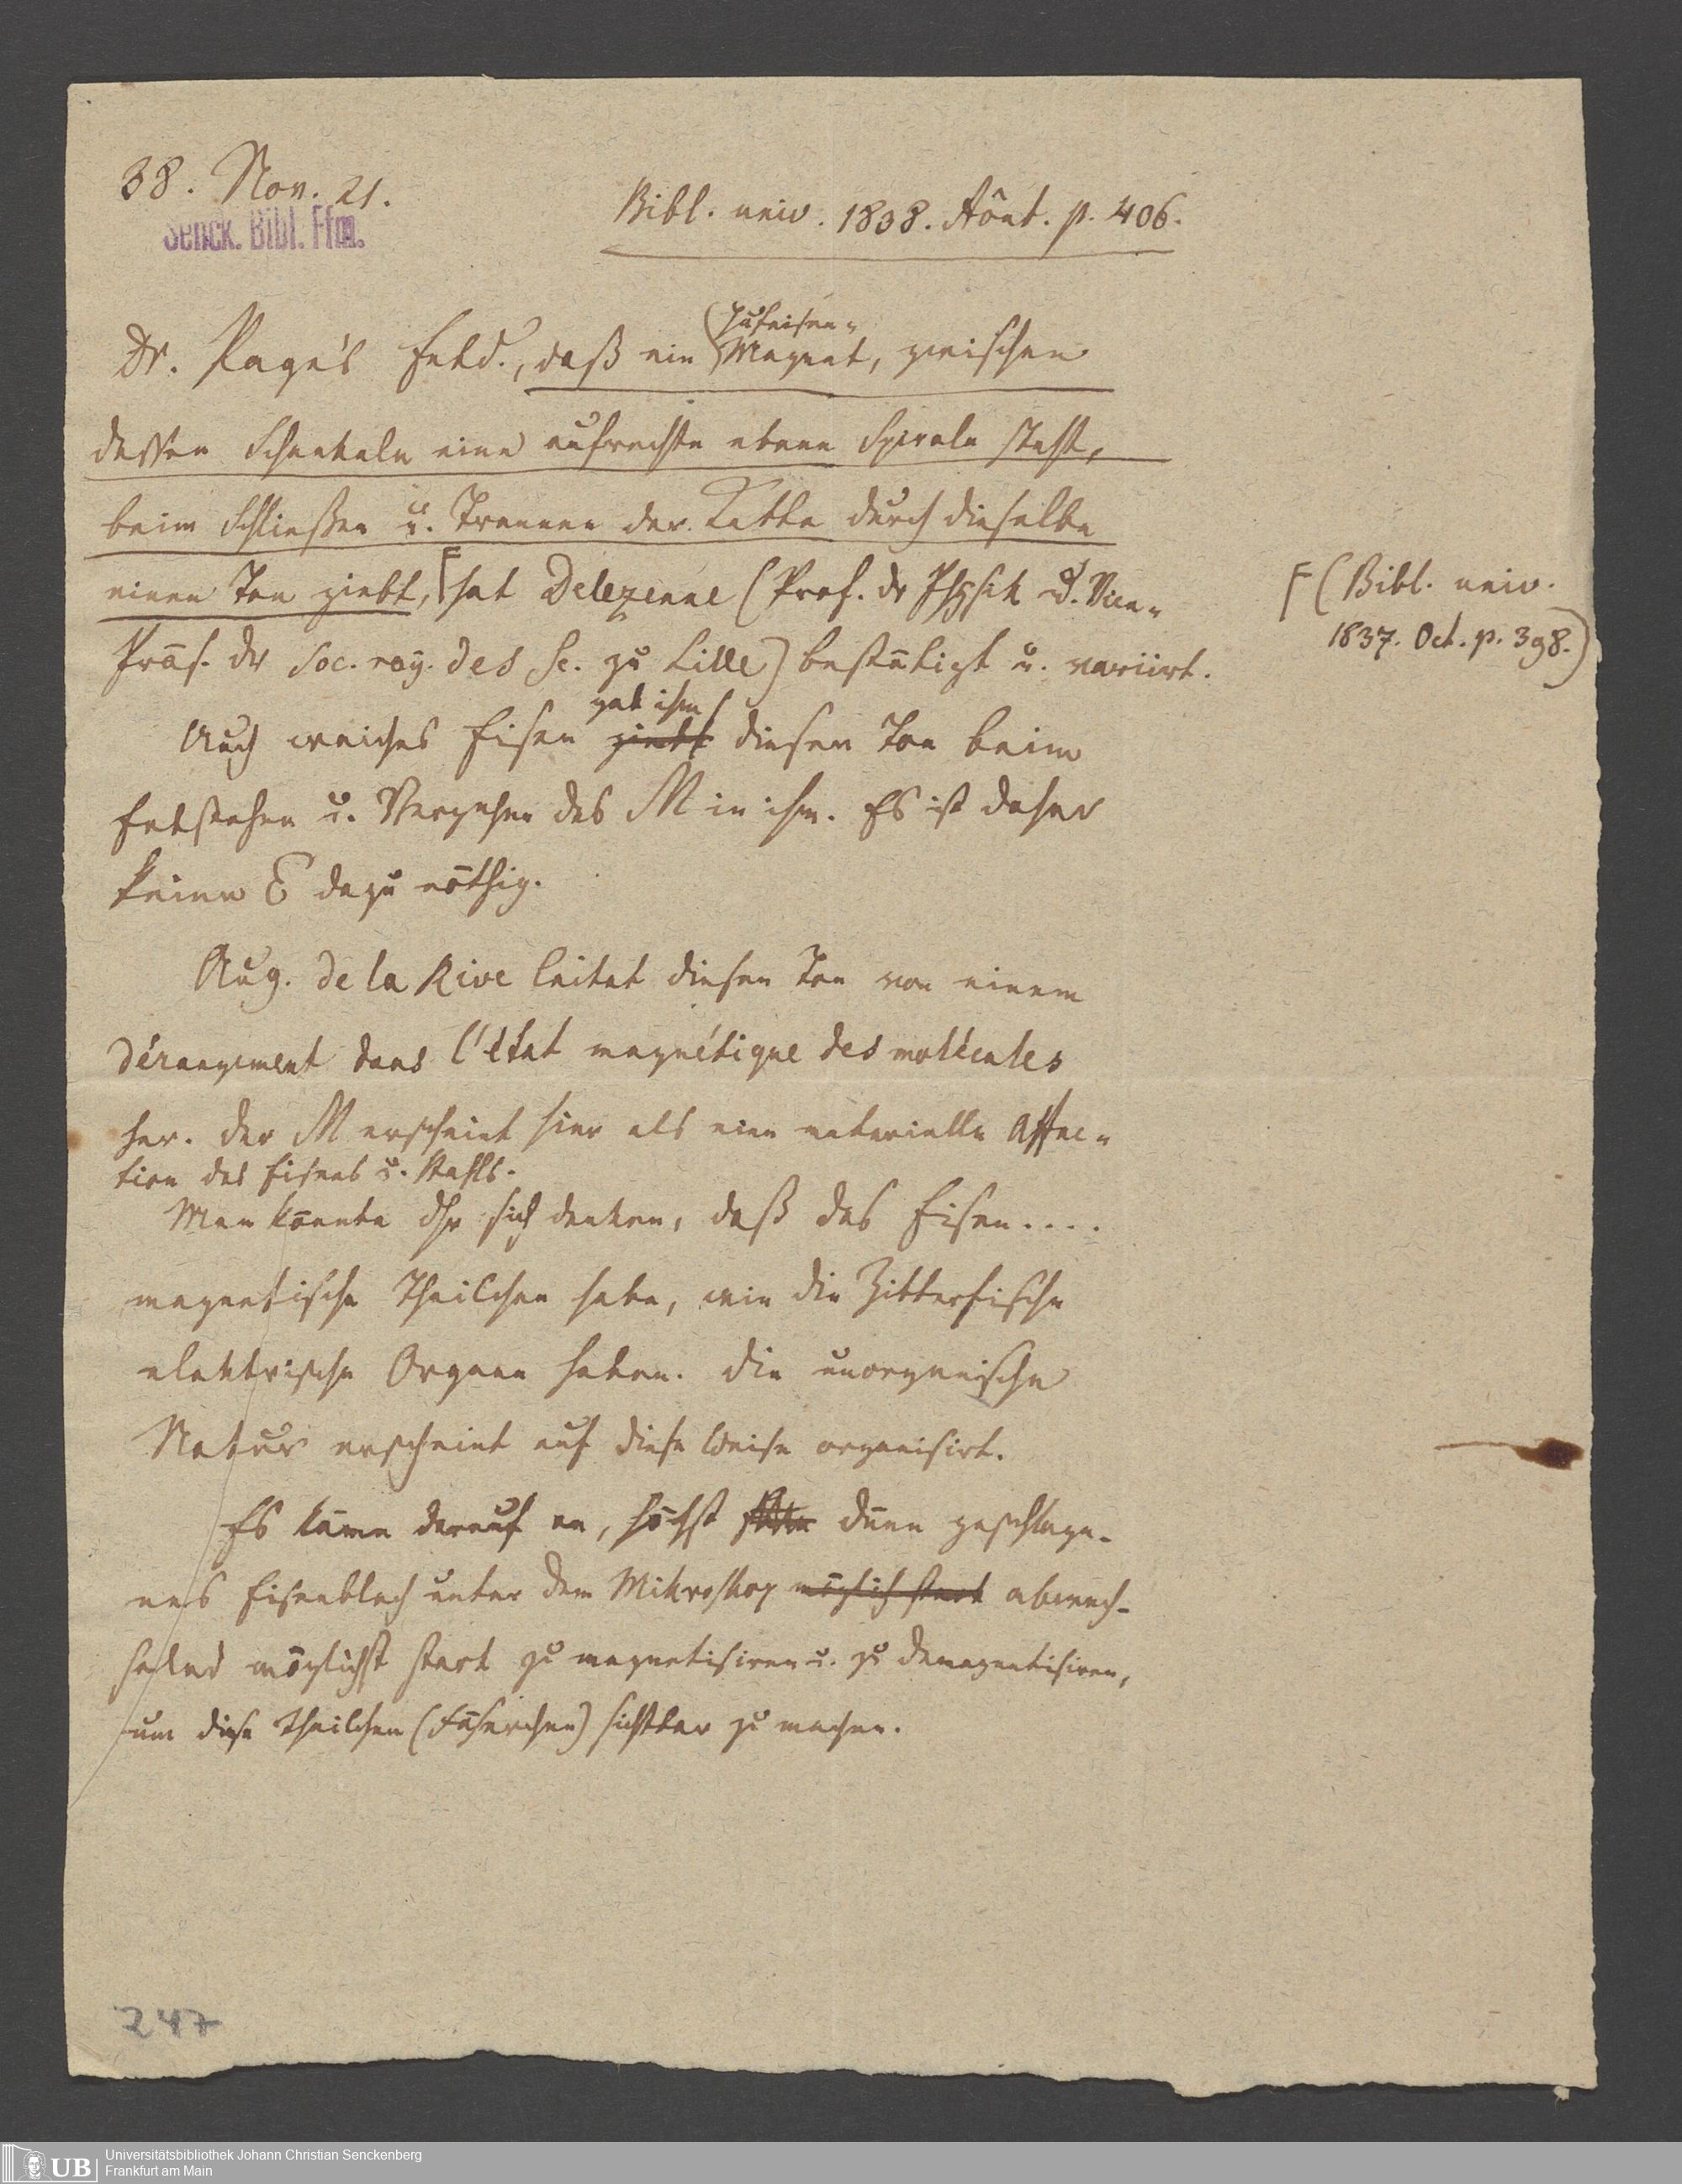 38. Nov. 21.
Senck. Bibl. Ffm.
Bibl. univ. 1838. Aôut. p. 406.
Hufeisen-
Dr. Page's Entd., daß ein Magnet, zwischen
dessen Schenkeln eine aufrechte ebene Spirale steht,
beim Schließen u. Trennen der Kette durch dieselbe
einen Ton giebt, F hat Delezenne (Prof. dr Physik u. Vice-
F (Bibl. univ.
1837. Oct. p. 398.)
Präs. dr Soc. roy. des Sc. zu Lille) bestätigt u. variirt.
gab ihm
Auch weiches Eisen giebt diesen Ton beim
Entstehen u. Vergehen des M in ihm. Es ist daher
keine E dazu nöthig.
Aug. de la Rive leitet diesen Ton von einem
dérangement dans l'état magnétique des molécules
her. Der M erscheint hier als eine materielle Affec-
tion des Eisens u. Stahls.
Man könnte sich denken, daß das Eisen....
magnetische Theilchen habe, wie die Zitterfische
elektrische Organe haben. Die unorganische
Natur erscheint auf diese Weise organisirt.
Es käme darauf an, höchst dünn geschlage-
nes Eisenblech unter dem Mikroskop möglich stark abwech-
selnd möglichst stark zu magnetisiren u. zu demagnetisiren,
um diese Theilchen (Fäserchen) sichtbar zu machen.
247
UB Universitätsbibliothek Johann Christian Senckenberg
Frankfurt am Main